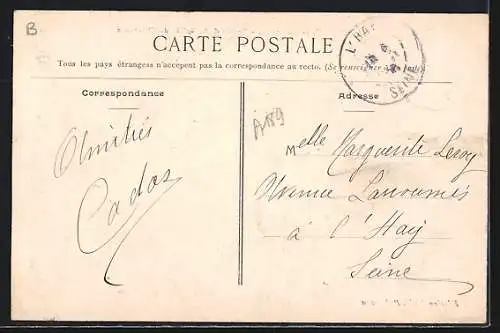 B
CARTE POSTALE
Tous les pays étrangers n'acceptent pas la correspondance au recto. (Se renseigner à la Poste)
L'HAY
SEINE
Correspondance
Adresse
A189
Amitiés
Melle Marguerite Leroy
Cados
Avenue Larroumès
à l'Hay
Seine